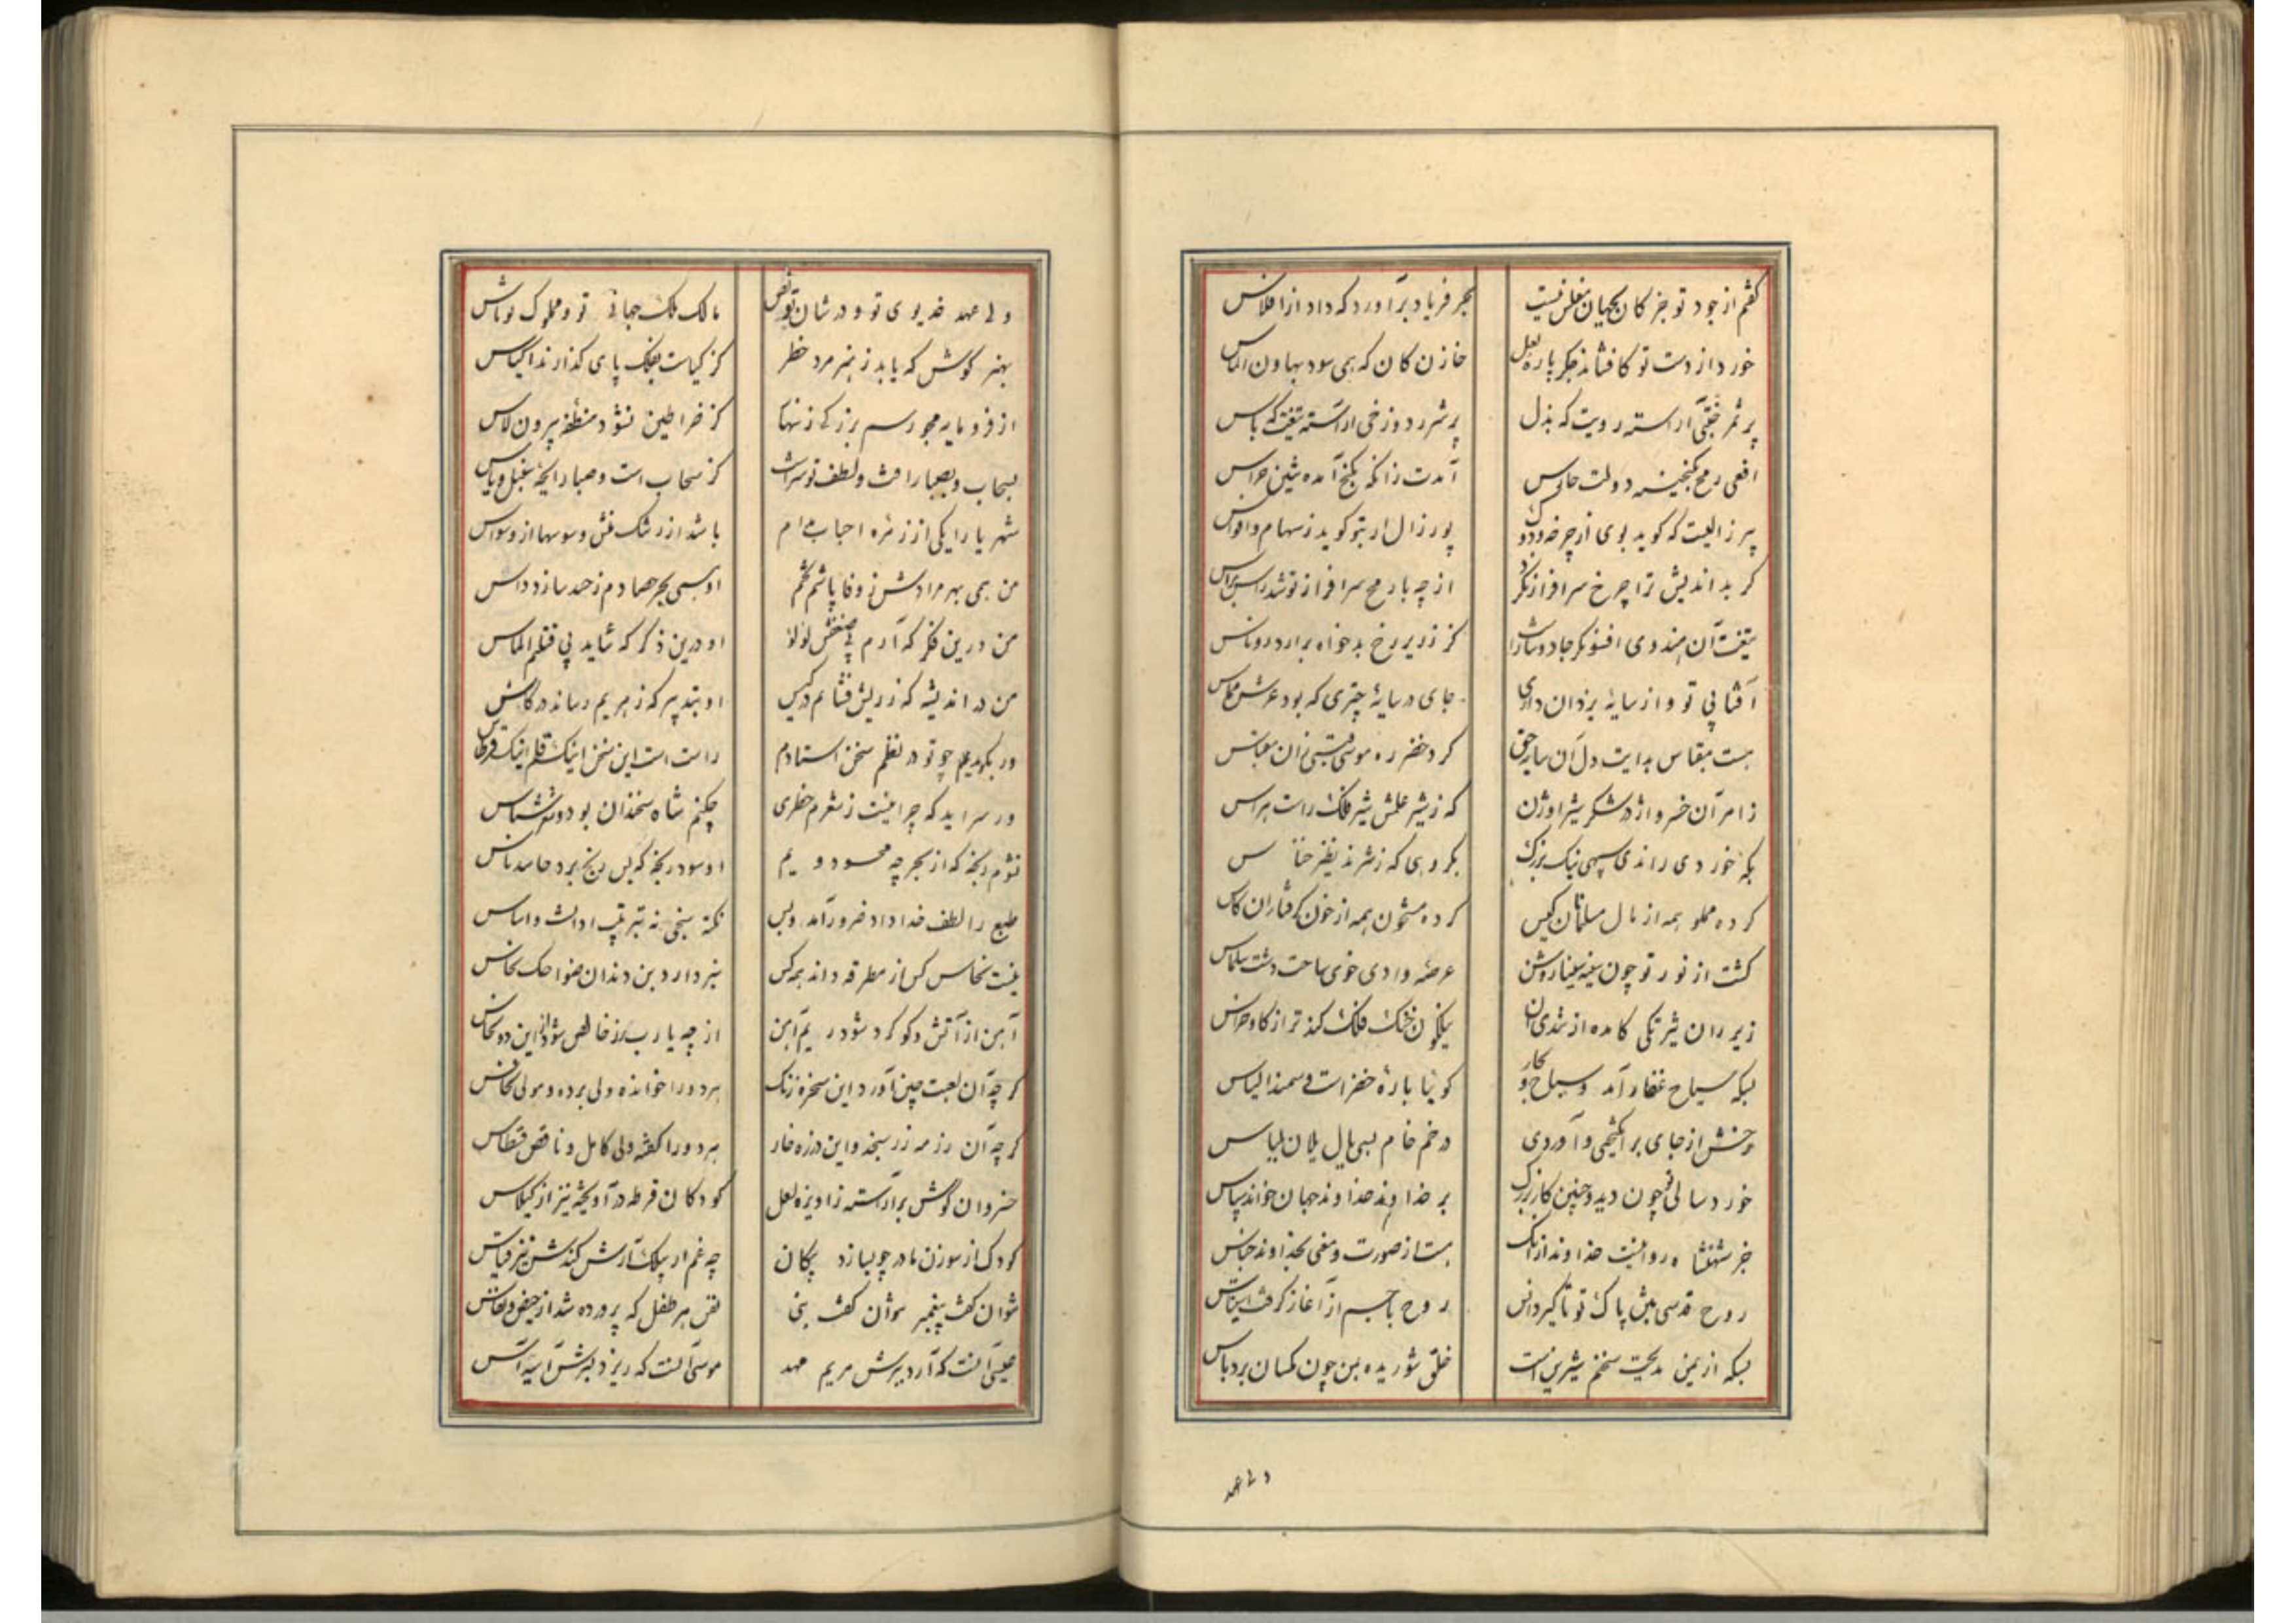 گفتم از جود تو جز کان بجهان مفلس نیست بحر فریاد برآورد که داد از افلاس
خورد از دست تو کافشاند جگر پاره لعل خازن کان که همی سود بهاون الماس
پر ثمر آراسته رویت که بذل پر شرر دوزخی آراسته تیغت که باس
افعی رمح بگنجینه دولت حارس آمدت زانکه بگنج آمده
پیر زالیست که گوید بوی از چرخه و دوک پور زال ار بتو گوید ز سهام و اقواس
گر بداندیش ترا چرخ سرافراز نکرد از چه با رمح سرافراز تو شد راس براس
تیغت آن هندوی افسونگر جادوست کز زریر رخ بدخواه برآرد روناس
آفتابی تو و از سایه یزدان داری جای در سایه چتری که بود عرش مماس
هست مقباس هدایت دل آن سایه حق کرد خضر ره موسی قبسی زان مقباس
ز امر آن خسرو اژدرشکر شیر اوژن که ز شیر علمش شیر فلک راست هراس
بگه خوردی راندی سپهی نیک بزرگ بگروهی که ز شرند نظیر خناس
کرده مملو همه از مال مسلمانان کیس کرده مشحون همه از خون گرفتاران کاس
گشت از نور تو چون سینه سینا روشن عرصه وادی خوی ساحت دشت سلماس
زیر ران شیر تکی کامده از تندی آن نیلگون خنگ فلک کندتر از گاو خراس
بسکه سیاح قفار آمد و سیاح بحار گوئیا باره خضر است و سمند الیاس
رخش از جای برانگیختی و آوردی در خم خام بسی یال یلان
خورد سالی تو چون دید و چنین کار بزرگ بر خداوند خداوند جهان خواند سپاس
جز شهنشاه روا نیست خداوند از آنک هست از صورت و معنی بخداوند جناس
روح قدسی پاک تو تا گیرد انس روح با جسم از آغاز گرفت استیناس
بسکه از یمن مدیحت سخنم شیرین است خلق شوریده بمن چون مگسان بر دباس
ولی عهد
ولی عهد خدیوی تو و در شان تو نص مالک ملک جهانی تو و مملوک تو ناس
بهنر کوش که یابد ز هنر مرد خطر کز کیاست بفلک پای گذارند اکیاس
از فرومایه مجو رسم بزرگی زنهار کز خراطین نشود منطقه بیرون لاس
بسحاب و بصبا رافت و لطف تو سزاست کز سحاب است و صبا رایحه سنبل و یاس
شهریارا یکی از زمره احباب من ام باشد از رشک منش وسوسها از وسواس
من همی بهر مرادش ز وفا پاشم تخم او همی بهر حصادم ز حسد سازد داس
من درین فکر که آرم پی صنعش لؤلؤ او درین ذکر که شاید پی قتلم الماس
من در اندیشه که زر بیش فشانم در کیس او بتدبیر که زهر بیم رساند در کاس
ور بگوید بچه چو تو در نظم سخن استادم راست است این سخن اینک قلم اینک قرطاس
ور سراید که چرا نیست ز شعرم خطری چکنم شاه سخندان بود و شعرشناس
نشوم رنجه که از بحر چه محسود ویم او سود رنجه که بس رنج برد حاسد ناس
طبع را لطف خداداد ضرور آمد و بس نکته سنجی نه بترتیب اداتست و اساس
نیست نخاس کس از مطرقه داند همه کس بردارد بن دندان ضواحک نخاس
آهن از آتش و گوگرد شود ریم آهن از چه یا رب زر خالص شود از این دو نحاس
گرچه آن لعبت چین آورد این سخره زنگ هر دو را خوانده ولی برده و مولی نخاس
گرچه آن رزمه زر سنجد و این رزه خار هر دو را گفته ولی کامل و ناقص قسطاس
خسروان گوش برآراسته ز آویزه لعل کودکان قرطه در آویخته نیز از گیلاس
کودک از سوزن مادر چو بسازد پیکان چه غم ار پیلک آرش کندش تیر قیاس
نتوان گفت پیغمبر نتوان گفت نبی نفس هر طفل که پرورده شد از حیض و نفاس
عیسی آنست که آرد ببرش مریم مهد موسی آنست که ریزد ببرش آسیه آس